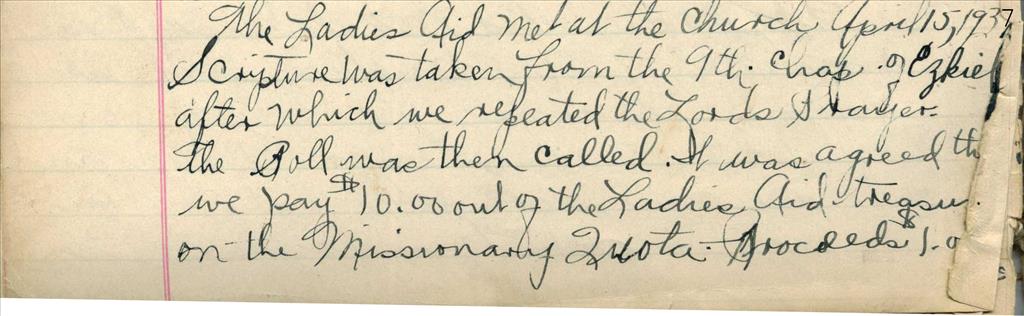 The Ladies Aid met at the church April 15, 1937
Scripture was taken from the 9th. Chap. of Ezkiel
after which we repeated the Lords Prayer.
the Roll was then called. It was agreed th
we pay $10.00 out of the Ladies Aid treasu
on the Missionary Quota. Proceeds $1.0